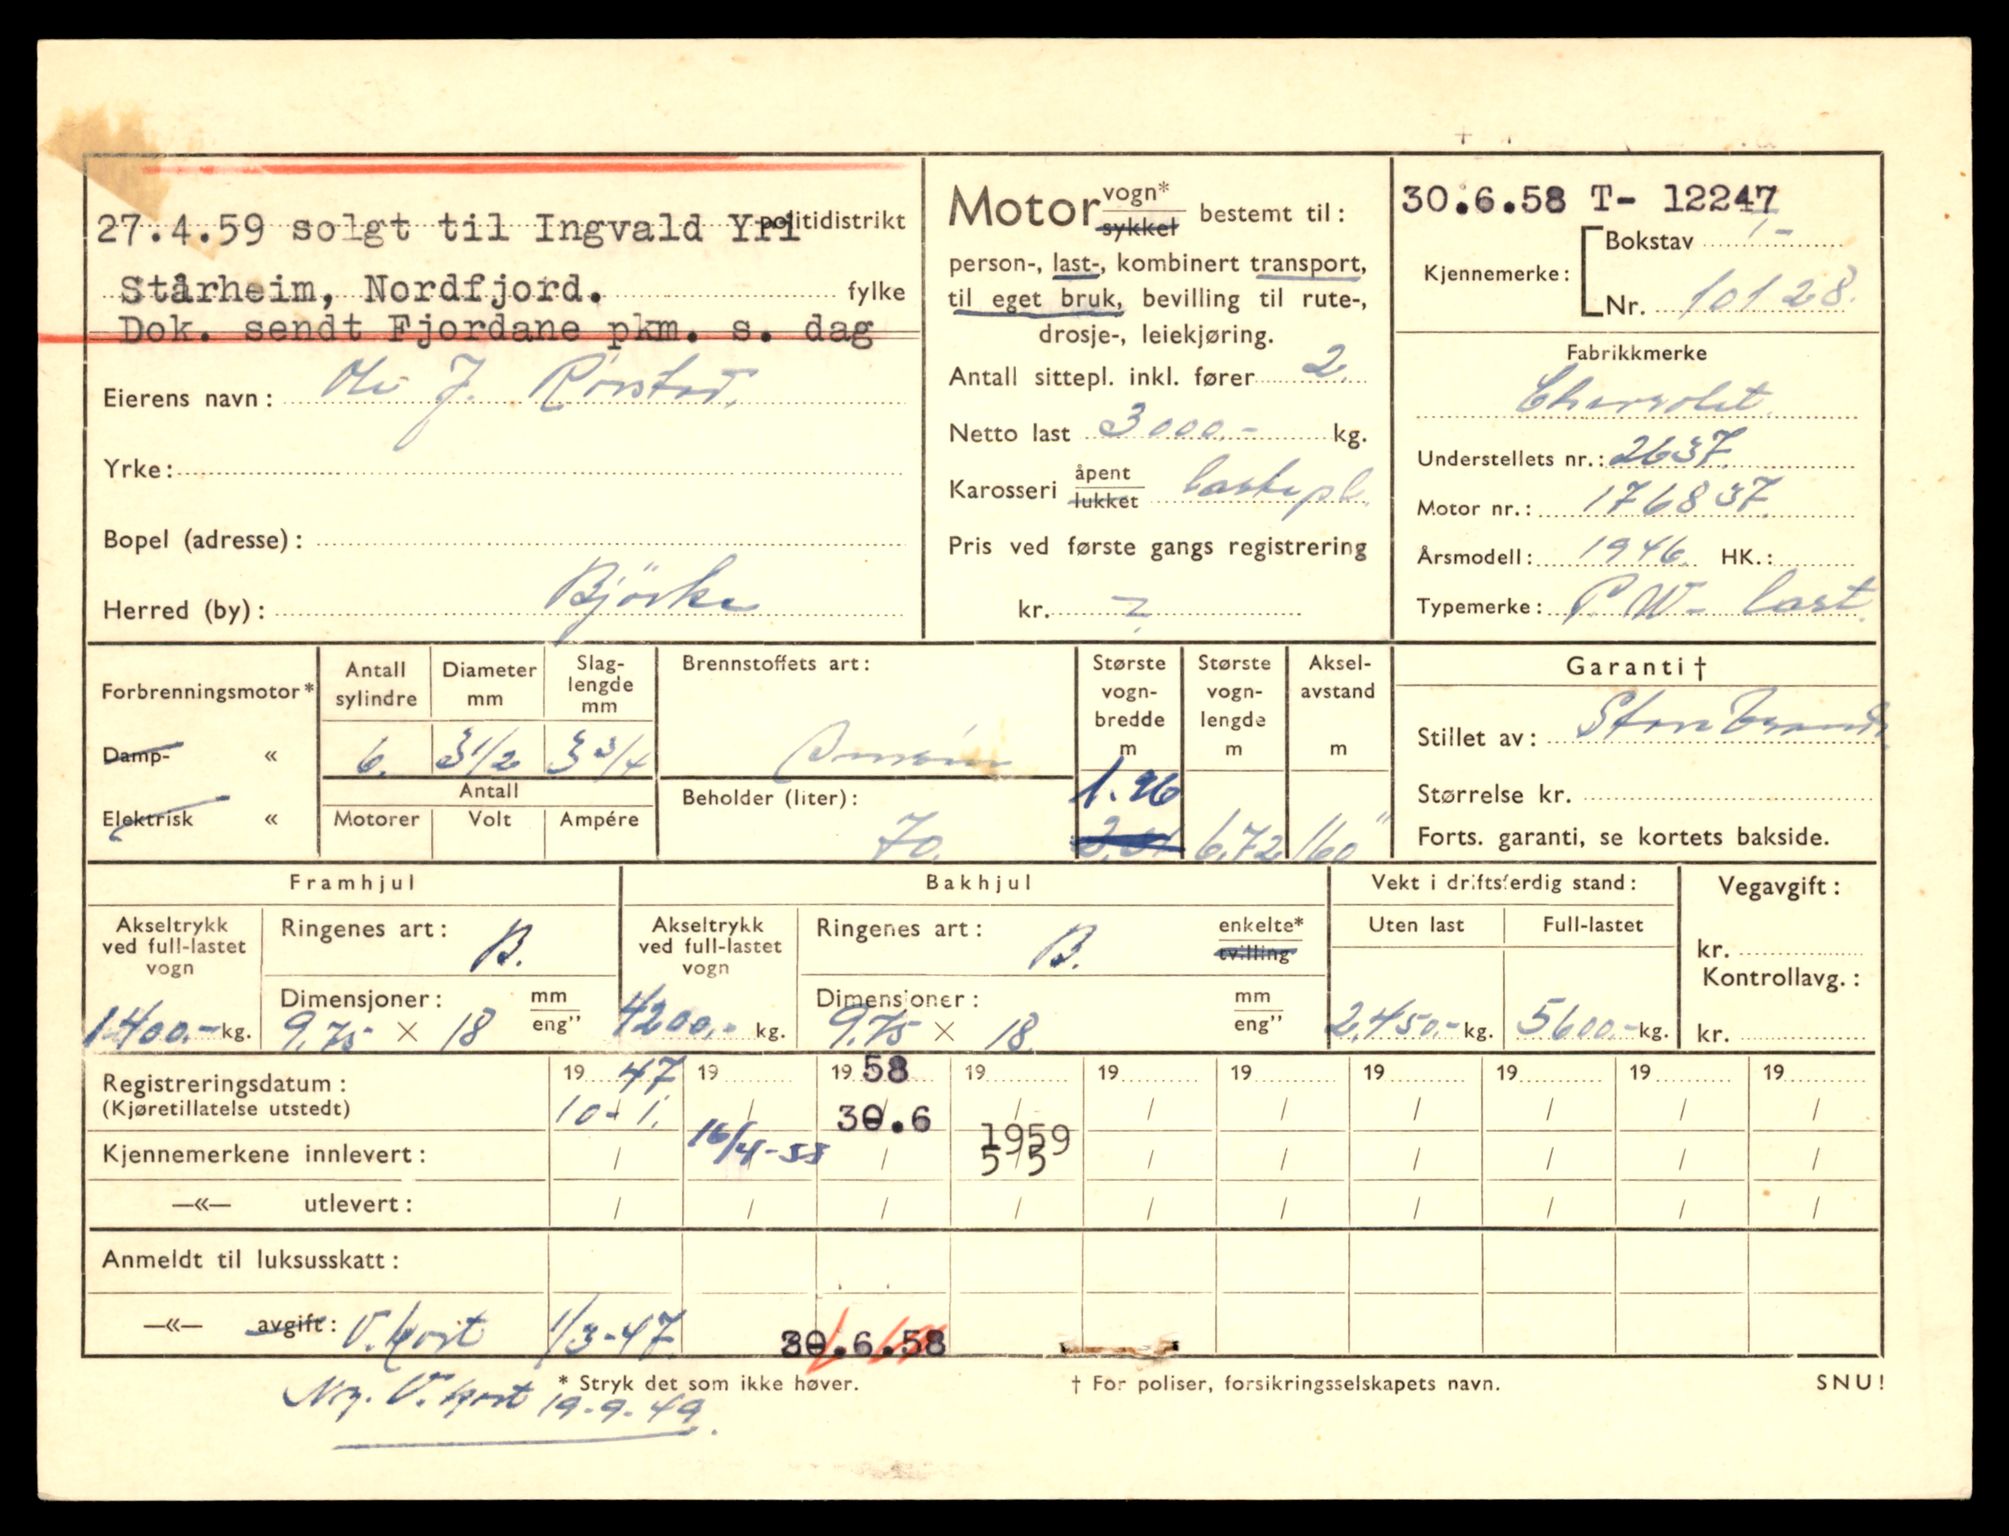 27.4.59 solgt til Ingvald Yri politidistrikt
Stårheim, Nordfjord. fylke
Dok. sendt Fjordane pkm. s. dag
Eierens navn: Ole J. Rørstad.
Yrke:
Bopel (adresse):
Herred (by): Bjørke
Motor vogn* sykkel bestemt til:
person-, last-, kombinert transport,
til eget bruk, bevilling til rute-,
drosje-, leiekjøring.
Antall sittepl. inkl. fører 2.
Netto last 3000.- kg.
Karosseri åpent lukket lastepl.
Pris ved første gangs registrering
kr. ?
30.6.58 T- 12247
Bokstav T-
Kjennemerke:
Nr. 10128.
Fabrikkmerke
Chevrolet.
Understellets nr.: 2637.
Motor nr.: 176837.
Årsmodell: 1946. HK.:
Typemerke: P.W- last.
Forbrenningsmotor*
Damp- «
Elektrisk «
Antall sylindre
6.
Diameter mm
3 1/2
Slag-lengde mm
3 3/4
Antall
Motorer Volt Ampére
Brennstoffets art:
Bensin
Beholder (liter):
70.
Største vogn-bredde m
1.96
Største vogn-lengde m
6.72
Aksel-avstand m
160"
Garanti †
Stillet av: Storebrand
Størrelse kr.
Forts. garanti, se kortets bakside.
Framhjul
Akseltrykk ved full-lastet vogn
1400.- kg.
Ringenes art: B.
Dimensjoner: mm eng"
9.75 × 18
Bakhjul
Akseltrykk ved full-lastet vogn
4200.- kg.
Ringenes art: B. enkelte* tvilling
Dimensjoner: mm eng"
9.75 × 18.
Vekt i driftsferdig stand:
Uten last Full-lastet
2.450.- kg. 5600.- kg.
Vegavgift:
kr.
Kontrollavg.:
kr.
Registreringsdatum: 19 47 19 19 58 19 19 19 19 19 19 19
(Kjøretillatelse utstedt) 10 - 1. / 30.6 / / / / / / /
Kjennemerkene innlevert: / 16/4-58 / 1959 5/5 / / / / / /
—«— utlevert: / / / / / / / / / /
Anmeldt til luksusskatt:
—«— avgift: V.kort 1/3-47. 30.6.58
* Stryk det som ikke høver. † For poliser, forsikringsselskapets navn. SNU!
V. kort 19-9-49.